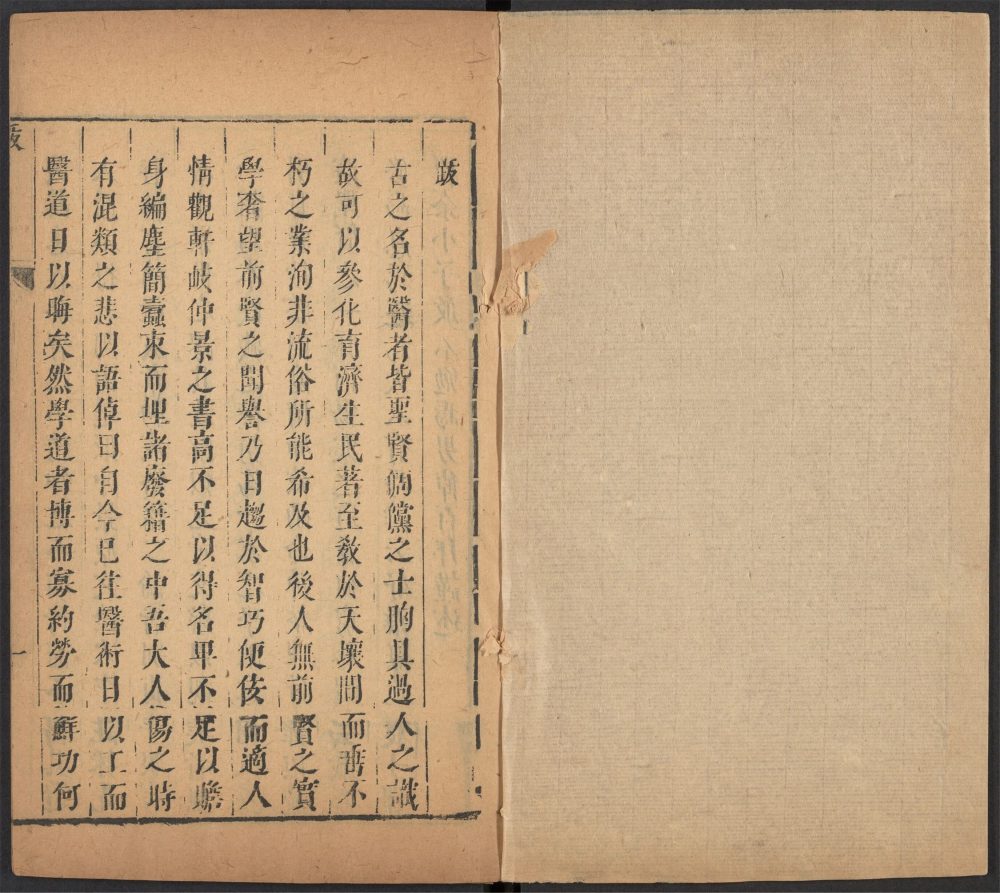 跋
古之名於醫者皆聖賢倜儻之士胸具過人之識
故可以參化育濟生民著至教於天壤間而垂不
朽之業洵非流俗所能希及也後人無前賢之實
學奢望前賢之聞譽乃日趨於智巧便佞而適人
情觀軒岐仲景之書高不足以得名卑不足以贍
身編塵簡蠹束而埋諸廢籍之中吾大人傷之時
有混類之悲以語倬曰自今已往醫術日以工而
醫道日以晦矣然學道者博而寡約勞而鮮功何
跋
一